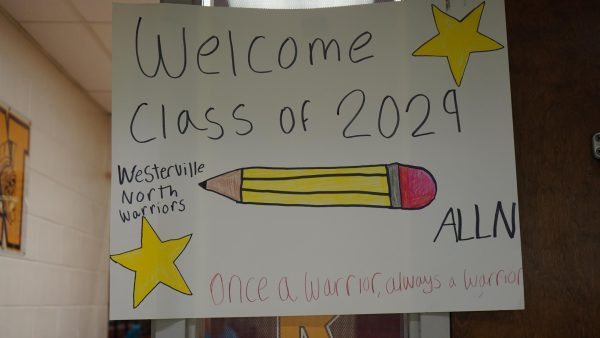 Welcome
Class of 2029
Westerville
North
Warriors
ALLN
Once a Warrior, always a Warrior